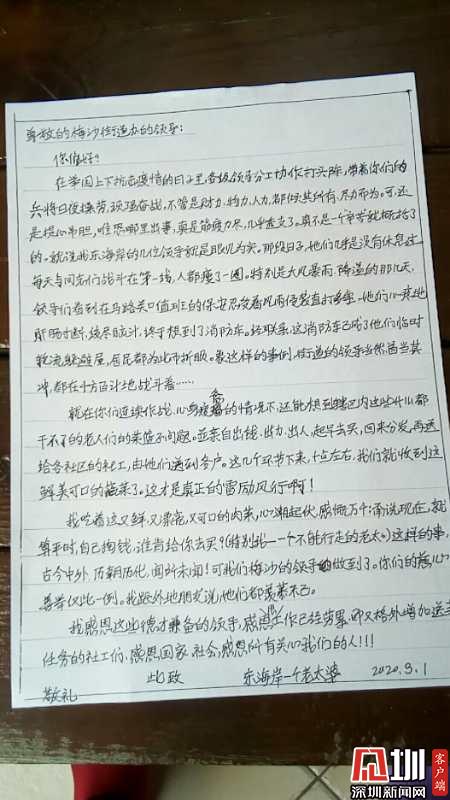 尊敬的梅沙街道办的领导：
你们好！
在举国上下抗击疫情的日子里，各级领导分工协作打头阵，带着你们的
兵将日夜操劳，顽强奋战，不管是财力、物力、人力，都倾其所有，尽力而为。可还
是提心吊胆，唯恐哪里出事，真是筋疲力尽，几乎透支了。真不是一个辛苦就概括了
的。就说我东海岸的几位领导
每天与同志们战斗在第一线，人都瘦了一圈。特别是大风暴雨、降温的那几天，
领导们看到在马路关口值班的保安
终于想到了消防车。经联系，这消防车已成了他们临时
都在千方百计地战斗着……
就在你们连续作战，心身疲惫的情况下，还能想到辖区内这些什么都
干不了的老人们的菜篮子问题。并亲自出钱、出力、出人，起早去买，回来分发，再送
给各社区的社工，由他们送到各户。这几个环节下来，十点左右，我们就收到这
鲜美可口的蔬菜了。这才是真正的雷厉风行啊！
我吃着这又鲜，又可口的肉菜，心潮起伏，感慨万千，甭说现在，就
算平时，自己掏钱，谁肯给你去买？(特别我一个不能行走的老太)这样的事，
古今中外，历朝历代，闻所未闻！可我们梅沙的领导做到了。你们的慈心
善举仅此一例。我跟外地朋友说，他们都羡慕不已。
我感恩这些德才兼备的领导，感恩工作已经劳累，却又格外增加送菜
任务的社工们，感恩国家、社会，感恩所有关心我们的人！！！
此致
东海岸一个老太婆 2020.3.1
敬礼
深圳
客户端
深圳新闻网